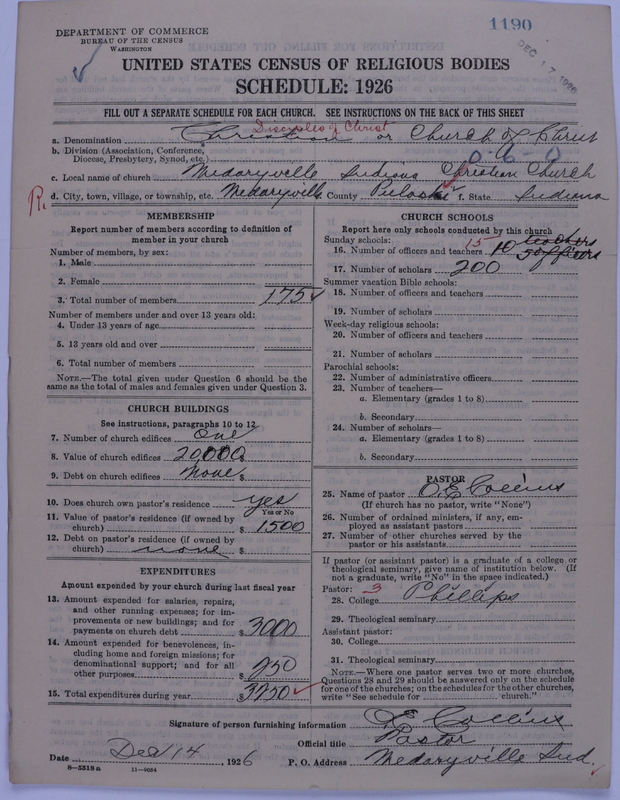 1190
DEC 17 1926
DEPARTMENT OF COMMERCE
BUREAU OF THE CENSUS
WASHINGTON
UNITED STATES CENSUS OF RELIGIOUS BODIES
SCHEDULE: 1926
FILL OUT A SEPARATE SCHEDULE FOR EACH CHURCH. SEE INSTRUCTIONS ON THE BACK OF THIS SHEET
Disciples of Christ
a. Denomination Christian or Church of Christ
b. Division (Association, Conference, Diocese, Presbytery, Synod, etc.) 0-6-0
c. Local name of church Medaryville Indiana Christian Church
R. d. City, town, village, or township, etc. Medaryville County Pulaski f. State Indiana
MEMBERSHIP
Report number of members according to definition of
member in your church
Number of members, by sex:
1. Male
2. Female
3. Total number of members 175
Number of members under and over 13 years old:
4. Under 13 years of age
5. 13 years old and over
6. Total number of members
NOTE.—The total given under Question 6 should be the
same as the total of males and females given under Question 3.
CHURCH BUILDINGS
See instructions, paragraphs 10 to 12
7. Number of church edifices One
8. Value of church edifices $ 20,000
9. Debt on church edifices $ None
10. Does church own pastor's residence yes
Yes or No
11. Value of pastor's residence (if owned by
church) $ 1500
12. Debt on pastor's residence (if owned by
church) none $
EXPENDITURES
Amount expended by your church during last fiscal year
13. Amount expended for salaries, repairs,
and other running expenses; for im-
provements or new buildings; and for
payments on church debt $ 3000
14. Amount expended for benevolences, in-
cluding home and foreign missions; for
denominational support; and for all
other purposes $ 250
15. Total expenditures during year $ 3250
CHURCH SCHOOLS
Report here only schools conducted by this church
Sunday schools:
16. Number of officers and teachers 15 10 teachers
5 officers
17. Number of scholars 200
Summer vacation Bible schools:
18. Number of officers and teachers
19. Number of scholars
Week-day religious schools:
20. Number of officers and teachers
21. Number of scholars
Parochial schools:
22. Number of administrative officers
23. Number of teachers—
a. Elementary (grades 1 to 8)
b. Secondary
24. Number of scholars—
a. Elementary (grades 1 to 8)
b. Secondary
PASTOR
25. Name of pastor O.E. Collins
(If church has no pastor, write "None")
26. Number of ordained ministers, if any, em-
ployed as assistant pastors
27. Number of other churches served by the
pastor or his assistants
If pastor (or assistant pastor) is a graduate of a college or
theological seminary, give name of institution below. (If
not a graduate, write "No" in the space indicated.)
Pastor: 3
28. College Phillips
29. Theological seminary
Assistant pastor:
30. College
31. Theological seminary
NOTE.—Where one pastor serves two or more churches,
Questions 28 and 29 should be answered only on the schedule
for one of the churches; on the schedules for the other churches,
write "See schedule for church."
Signature of person furnishing information O E Collins
Official title Pastor
Date Dec 14 1926 P. O. Address Medaryville Ind.
8—5518a 11—9054